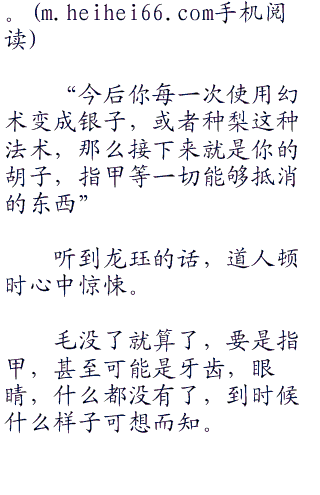 。(m.heihei66.com手机阅
读)
“今后你每一次使用幻
术变成银子，或者种梨这种
法术，那么接下来就是你的
胡子，指甲等一切能够抵消
的东西”
听到龙珏的话，道人顿
时心中惊悚。
毛没了就算了，要是指
甲，甚至可能是牙齿，眼
睛，什么都没有了，到时候
什么样子可想而知。